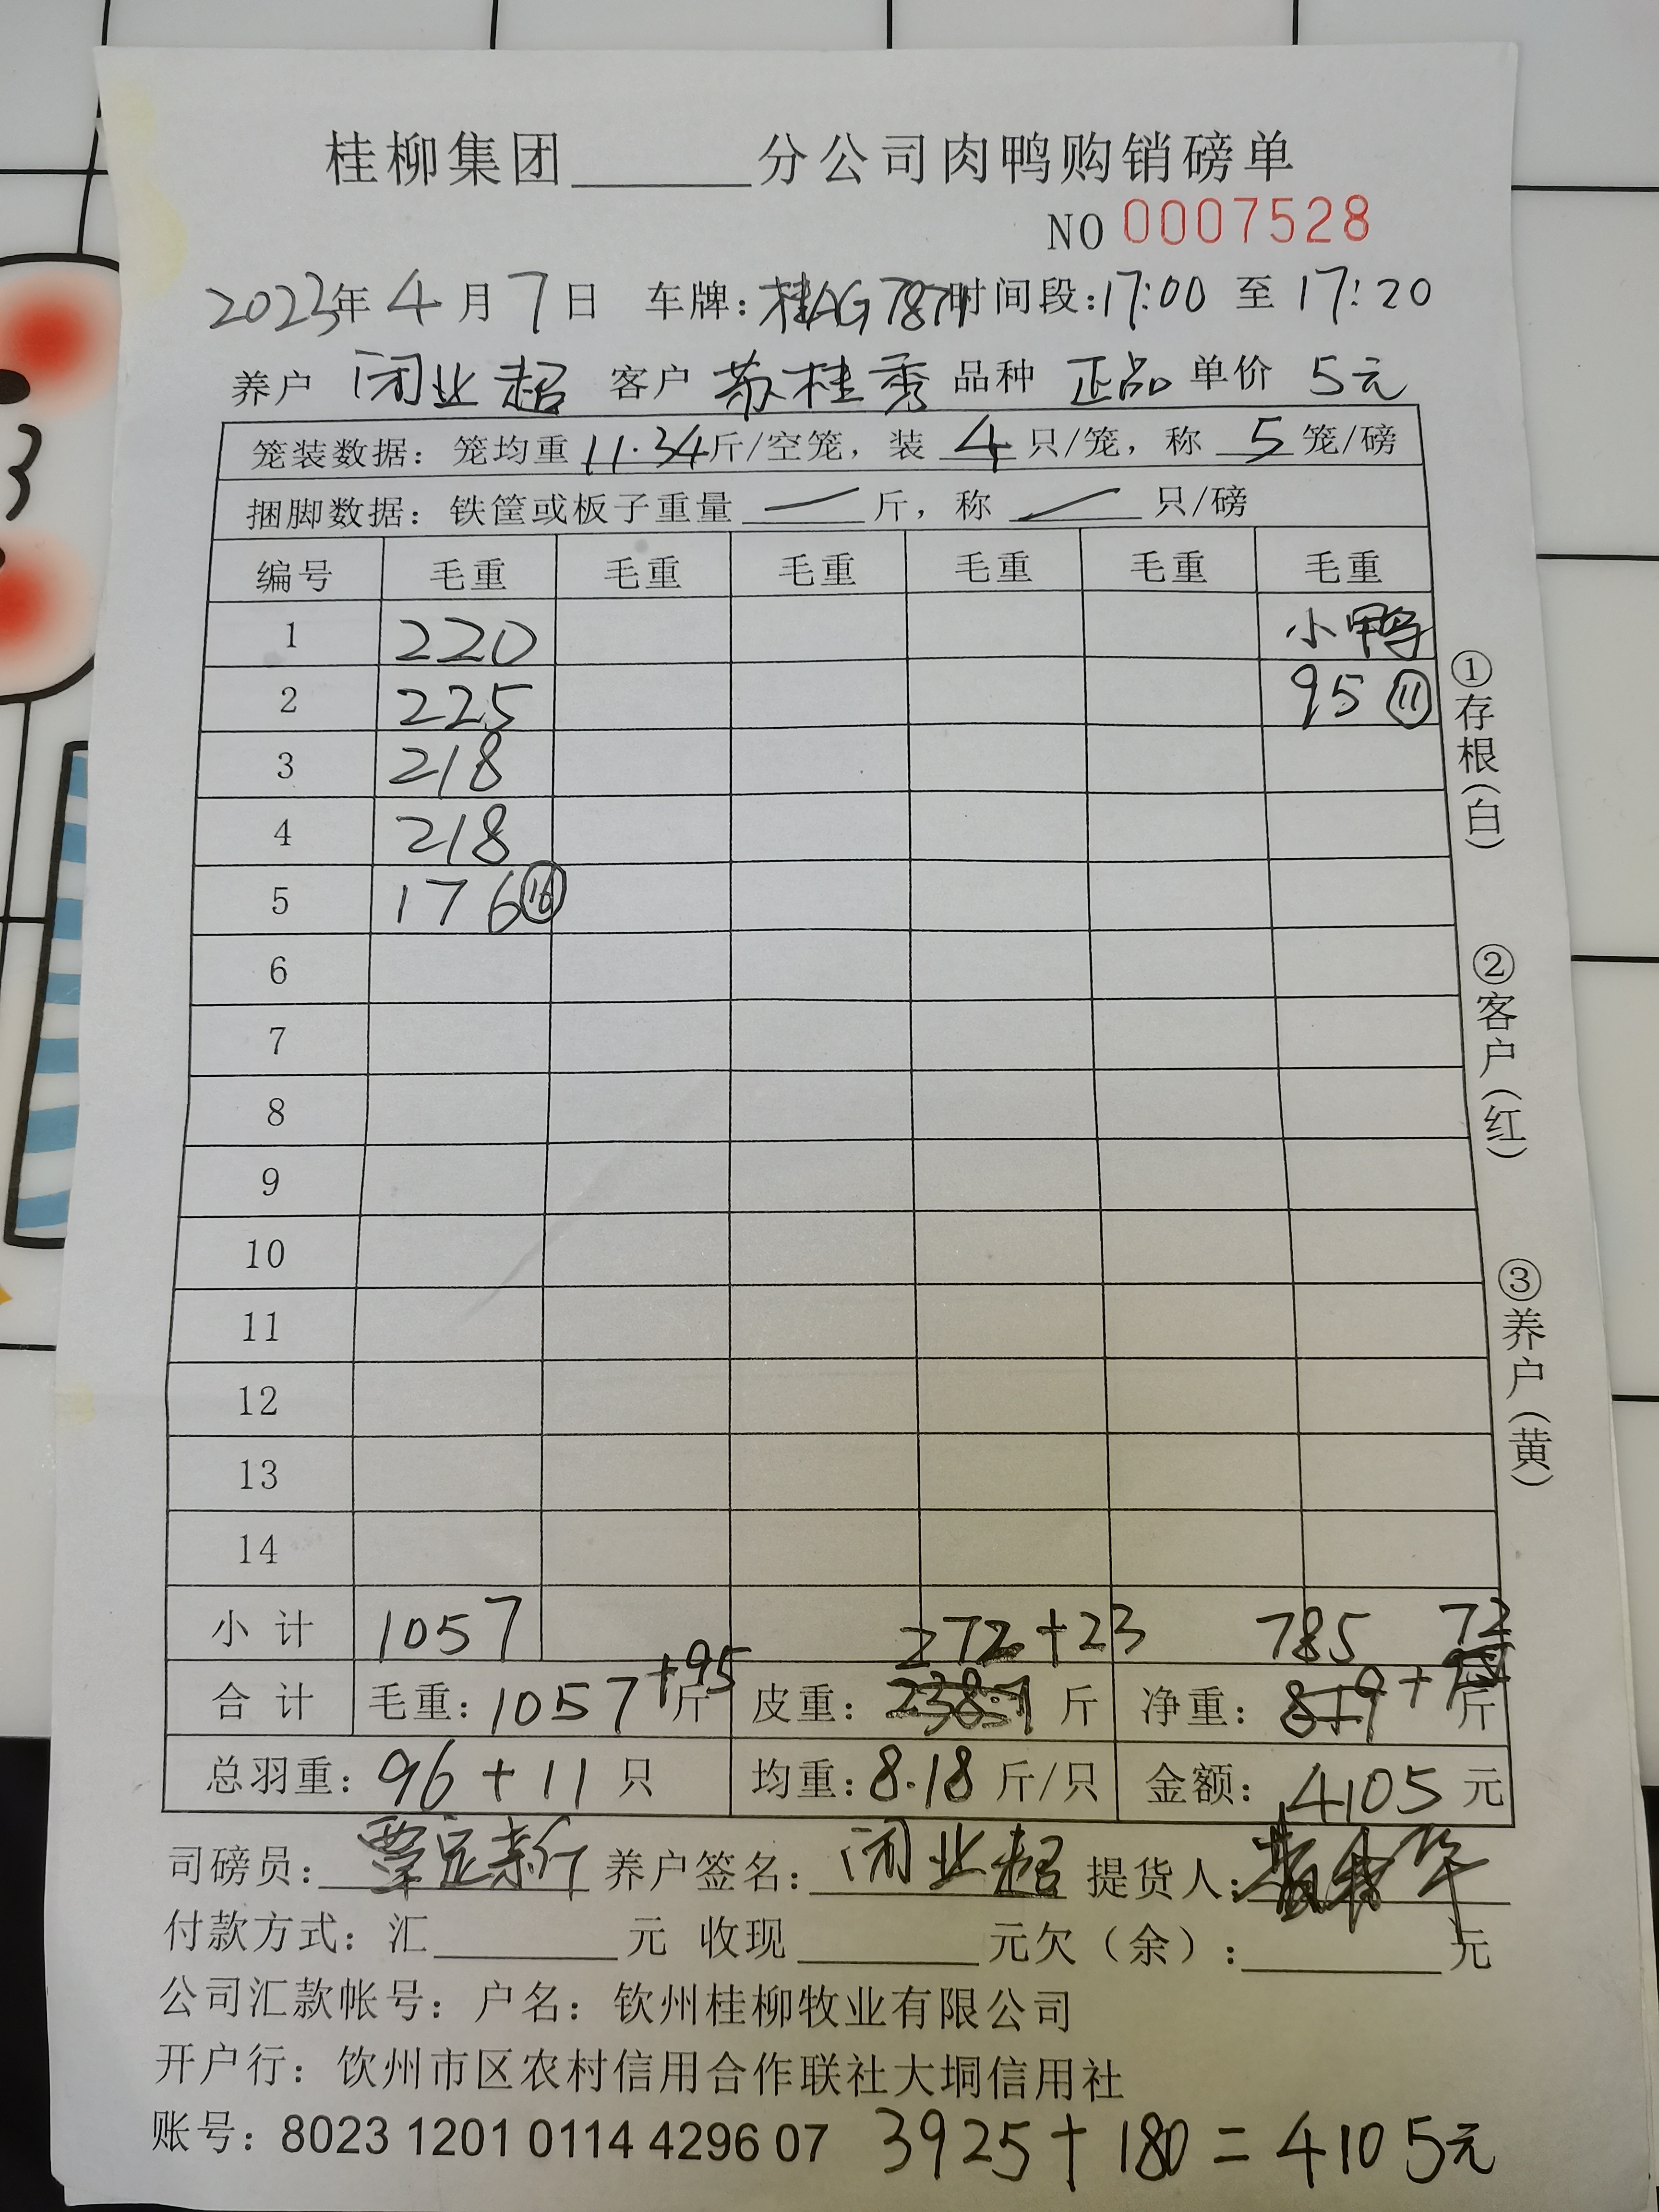 桂柳集团______分公司肉鸭购销磅单
NO 0007528
2023年 4 月 7 日 车牌:桂AG787 时间段:17:00 至 17:20
养户 闭业超 客户 苏桂秀 品种 正品 单价 5元
笼装数据：笼均重 11.34斤/空笼，装 4 只/笼，称 5 笼/磅
捆脚数据：铁筐或板子重量 — 斤，称 — 只/磅
编号 毛重 毛重 毛重 毛重 毛重 毛重
1 220 小鸭
2 225 95 ⑪
3 218
4 218
5 176 ⑯
6
7
8
9
10
11
12
13
14
小计 1057 272+23 785 72
合计 毛重：1057+95斤 皮重：238.7斤 净重：819+斤
总羽重：96+11只 均重：8.18斤/只 金额：4105元
司磅员： 养户签名：闭业超 提货人：
付款方式：汇______元 收现______元欠（余）：______元
公司汇款帐号：户名：钦州桂柳牧业有限公司
开户行：钦州市区农村信用合作联社大垌信用社
账号：8023 1201 0114 4296 07 3925+180=4105元
①存根(白)
②客户(红)
③养户(黄)